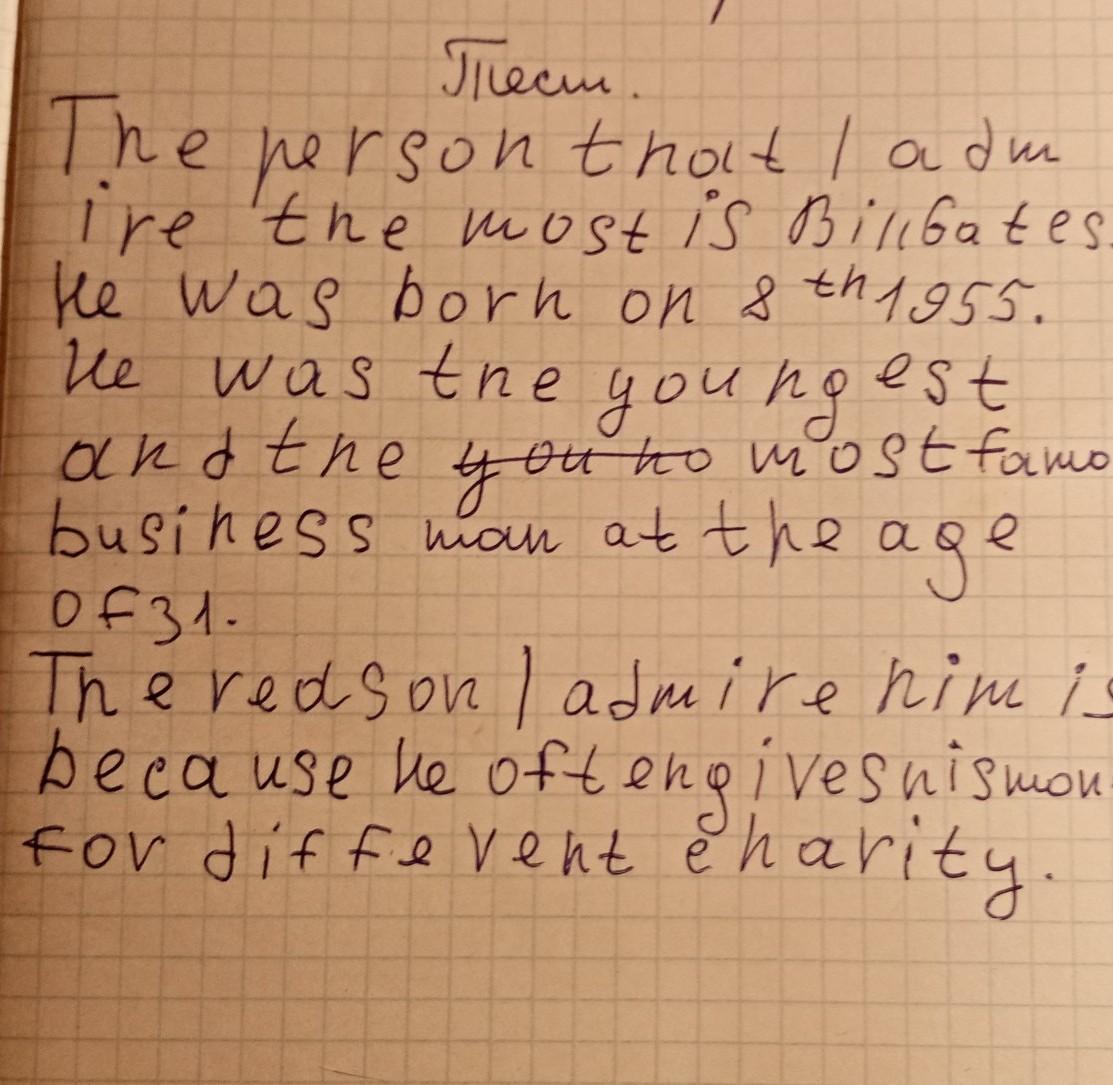 Тест.
The person that I adm
ire the most is Bill Gates.
He was born on 8th 1955.
He was the youngest
and the you no most famo
business man at the age
of 31.
The reason I admire him is
because he often gives his mon
for different charity.